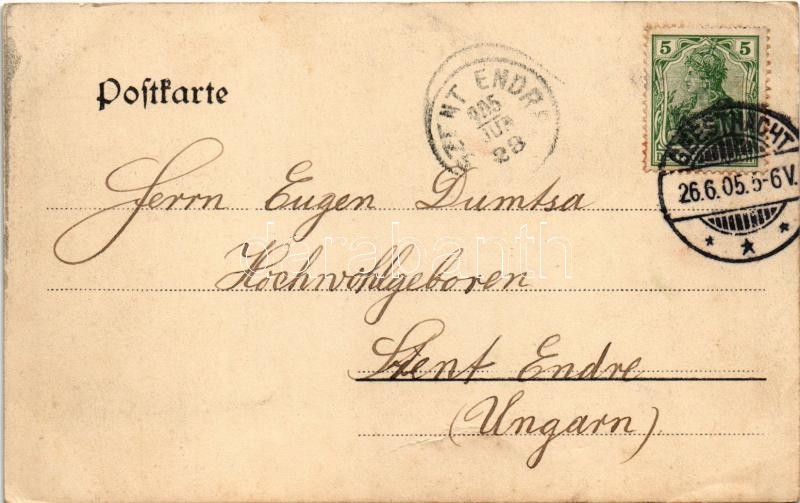 Postkarte
SZENT ENDRE
905
JUN
28
5 5
GEESTHACHT
26.6.05.5-6V.
Herrn Eugen Dumtsa
Hochwohlgeboren
Szent Endre
(Ungarn)
darabanth